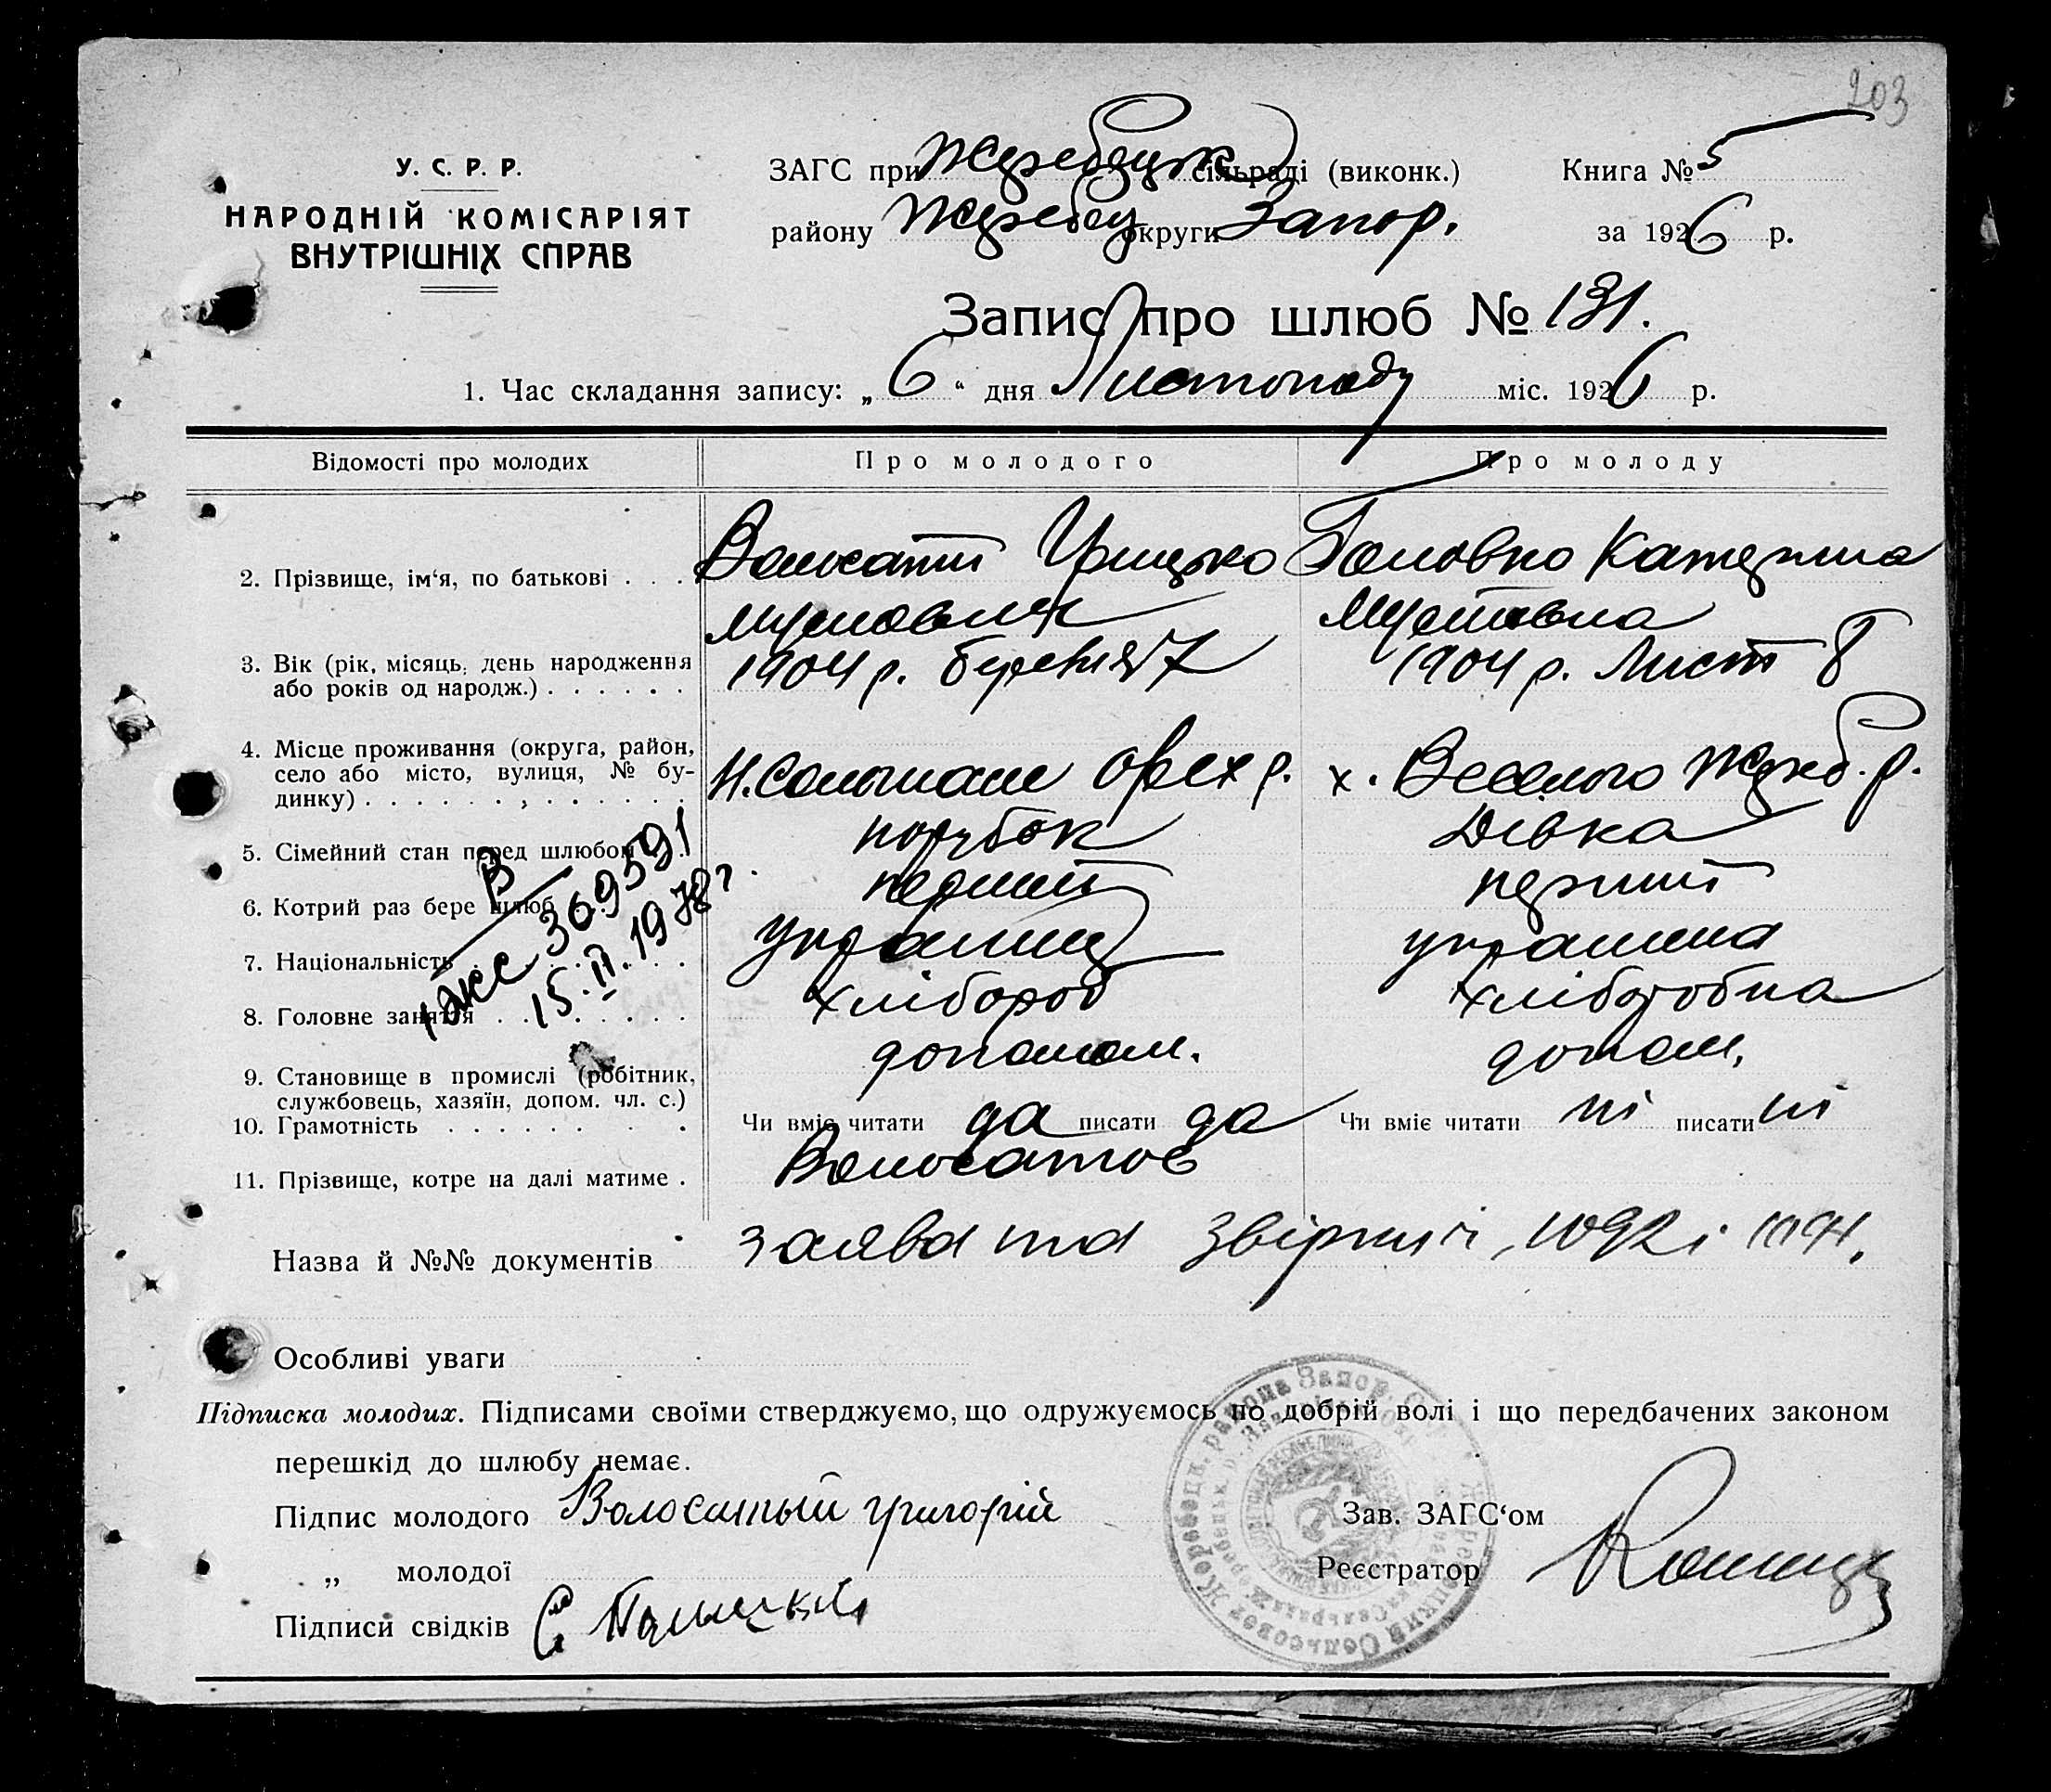 203
У. С. Р. Р.
НАРОДНІЙ КОМІСАРІЯТ
ВНУТРІШНІХ СПРАВ
ЗАГС при Жеребецьк сільраді (виконк.) Книга № 5
району Жеребец округи Запор. за 1926 р.
Запис про шлюб № 131.
1. Час складання запису: „ 6 “ дня Листопаду міс. 1926 р.
Відомості про молодих Про молодого Про молоду
2. Прізвище, ім‘я, по батькові . . . Волосатий Грицько Головко Катерина
3. Вік (рік, місяць, день народження
або років од народж.) . . . . . . 1904 р. березня 7 1904 р. Лист 8
4. Місце проживання (округа, район,
село або місто, вулиця, № бу-
динку) . . . . . . , . . . . . . Орех р. х. Веселого Жереб. р.
5. Сімейний стан перед шлюбом парубок Дівка
6. Котрий раз бере шлюб . . перший перший
7. Національність українец українка
8. Головне заняття . . . . . . . . хлібороб хліборобка
9. Становище в промислі (робітник,
службовець, хазяїн, допом. чл. с.) допомом. допом.
10. Грамотність . . . . . . . . Чи вміє читати да писати да Чи вміє читати ні писати ні
11. Прізвище, котре на далі матиме . Волосатов
369591
15.II.1978г.
Назва й №№ документів заява та 1092 і
Особливі уваги
Підписка молодих. Підписами своїми стверджуємо, що одружуємось по добрій волі і що передбачених законом
перешкід до шлюбу немає.
Підпис молодого Волосатый григорій
Зав. ЗАГС‘ом
„ молодої
Реєстратор
Підписи свідків